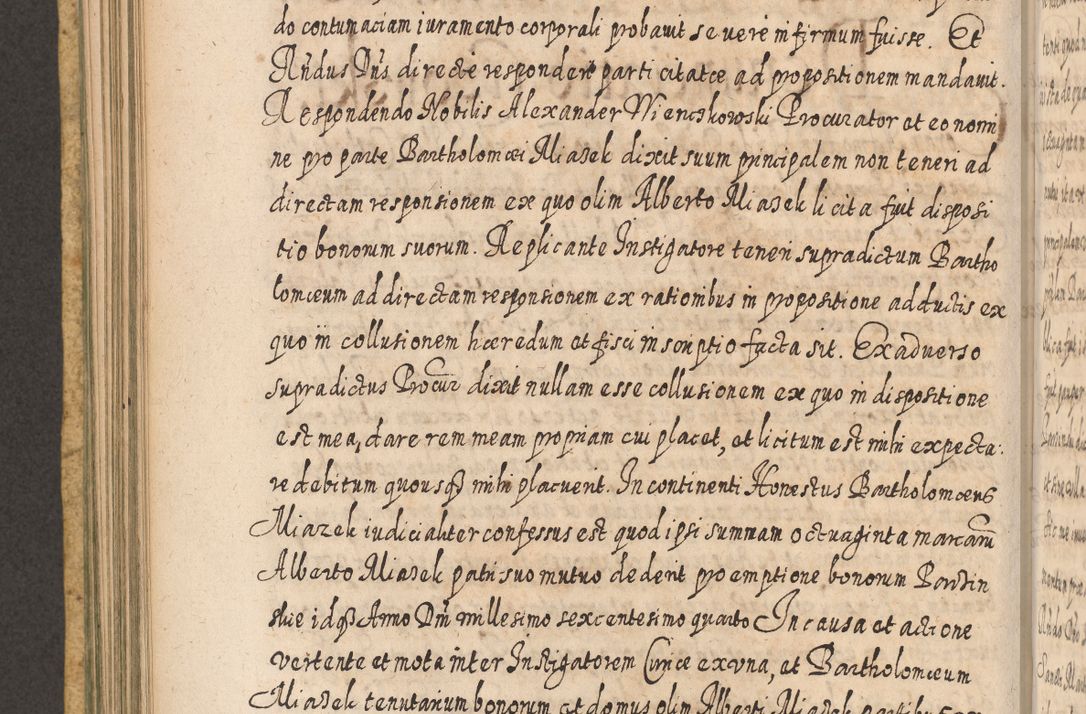 do contumaciam iuramento corporali probauit se vere infirmum fuisse. Et
Rndus Dns directe respondere parti citatae ad propositionem mandauit.
Respondendo Nobilis Alexander Wienczkowski Procurator et eo nomi
ne pro parte Bartholomæi Miazek dixit suum principalem non teneri ad
directam responsionem ex quo olim Alberto Miazek licita fuit disposi
tio bonorum suorum. Replicante Instigatore teneri supradictum Bartho
lomæum ad directam responsionem ex rationibus in propositione adductis ex
quo in collusionem hæredum et fisci inscriptio facta sit. Ex aduerso
supradictus Procur dixit nullam esse collusionem ex quo in dispositione
est mea, dare rem meam propriam cui placet, et licitum est mihi expecta:
re debitum quousq mihi placuerit. In continenti Honestus Bartholomæus
Miazek iudicialiter confessus est quod ipsi summam octuaginta marcarum
Alberto Miazek patri suo mutuo dederit pro emptione bonorum
idq Anno Dni millesimo sexcentesimo quarto In causa et actione
vertente et mota inter Instigatorem Curiæ ex vna, et Bartholomæum
Miazek tenutarium bonorum et domus olim Alberti Miazek partibus ex